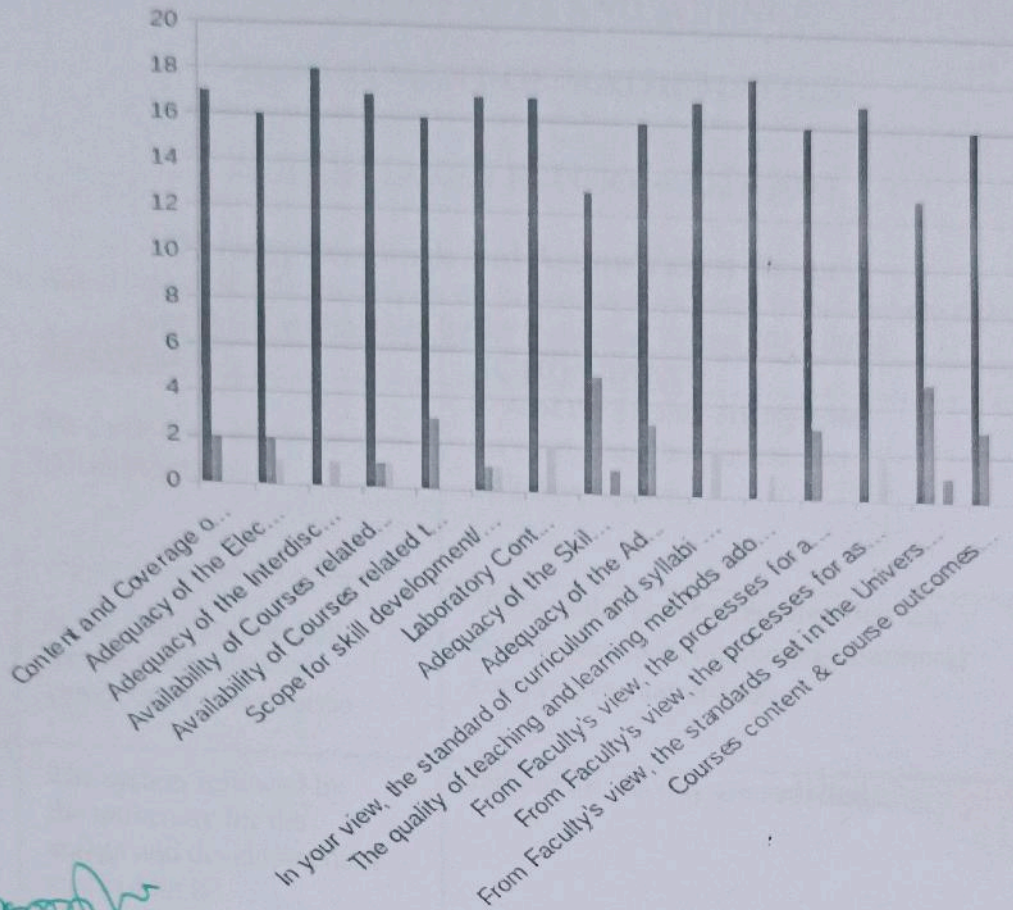 20
18
16
14
12
10
8
6
4
2
0
Content and Coverage o...
Adequacy of the Elec...
Adequacy of the Interdisc...
Availability of Courses related...
Availability of Courses related t...
Scope for skill development/...
Laboratory Cont...
Adequacy of the Skil...
Adequacy of the Ad...
In your view, the standard of curriculum and syllabi ...
The quality of teaching and learning methods ado...
From Faculty's view, the processes for a...
From Faculty's view, the processes for as...
From Faculty's view, the standards set in the Univers...
Courses content & course outcomes...